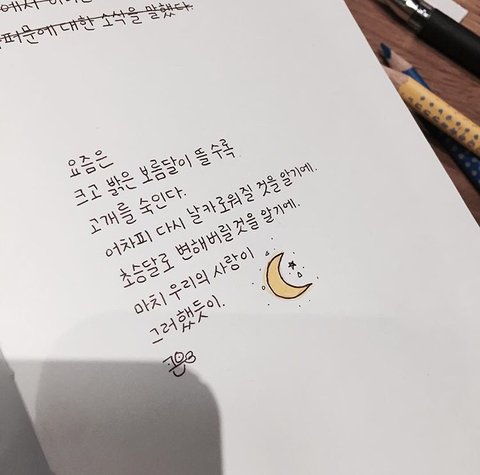 대한 소식을 말했다.
요즘은
크고 밝은 보름달이 뜰 수록
고개를 숙인다.
어차피 다시 날카로워질 것을 알기에.
초승달로 변해버릴것을 알기에.
마치 우리의 사랑이
그러했듯이.